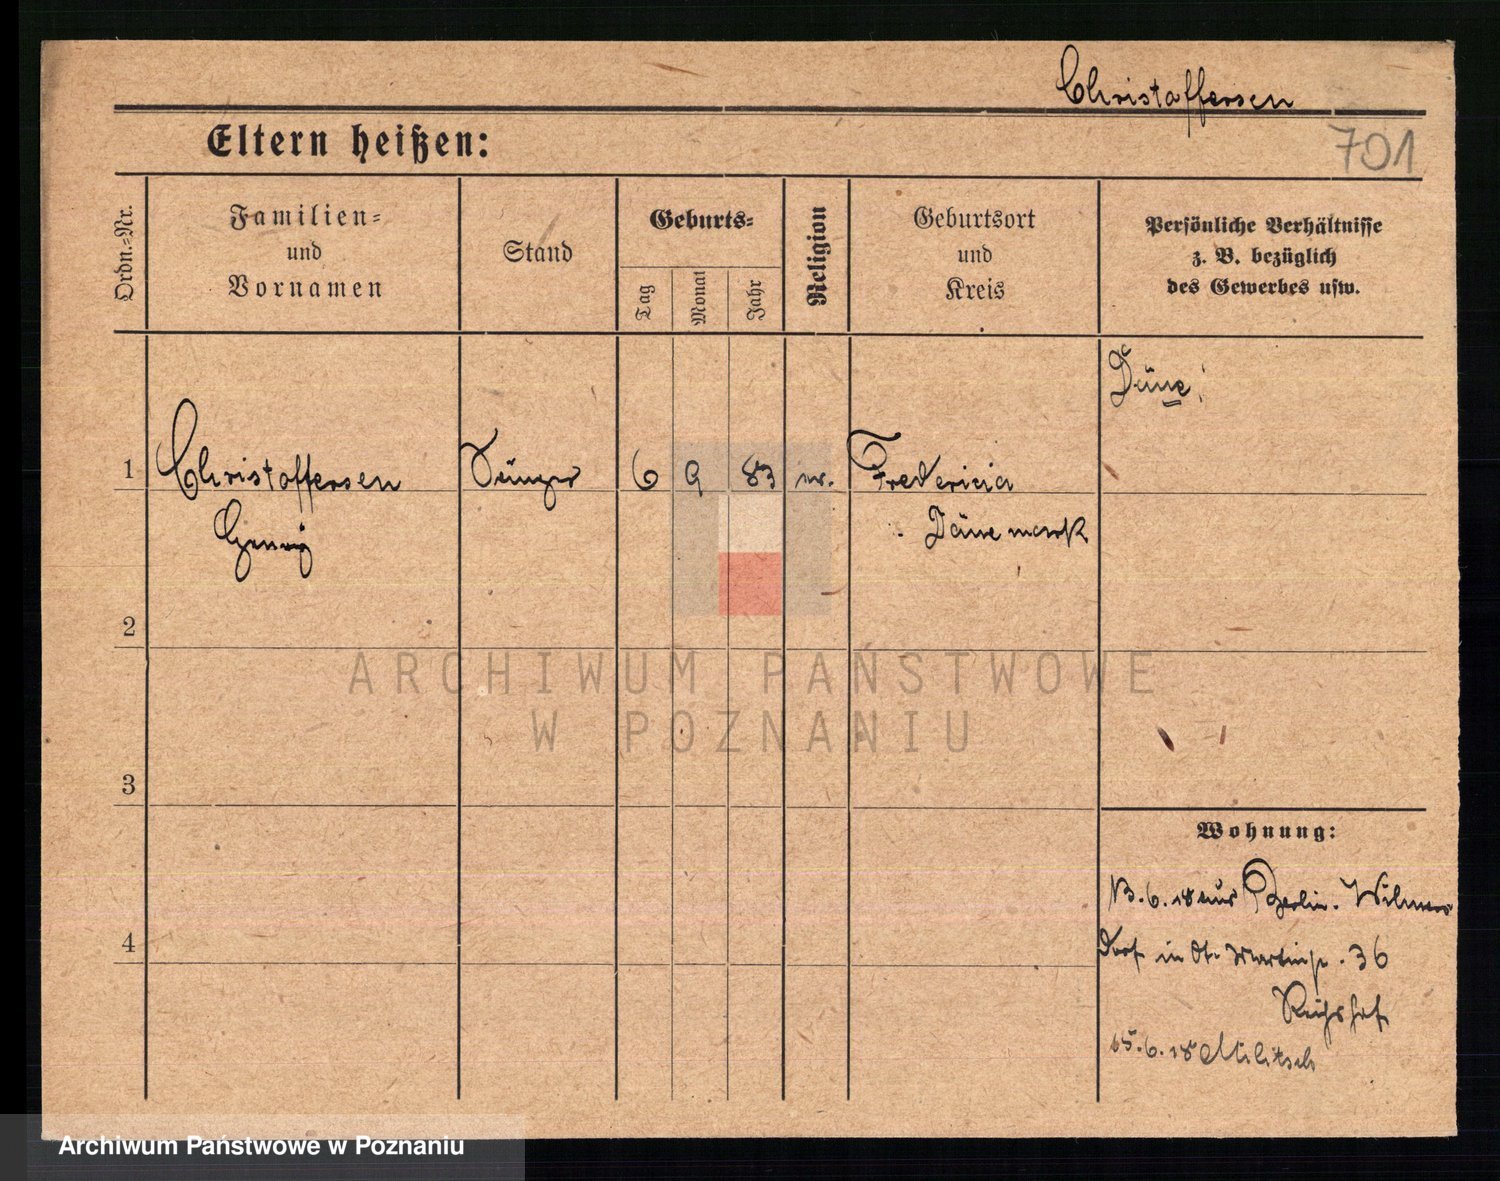 Christoffersen
701
Eltern heißen:
Ordn.-Nr.
Familien-
und
Vornamen
Stand
Geburts-
Tag
Monat
Jahr
Religion
Geburtsort
und
Kreis
Persönliche Verhältnisse
z. B. bezüglich
des Gewerbes usw.
Däne!
1
Christoffersen
Sänger
6
9
83
Fredericia
Henry
Dänemark
2
ARCHIWUM PAŃSTWOWE
W POZNANIU
3
Wohnung:
13.6.18 aus Berlin. Wilmers
dorf in St. Martinstr. 36
4
Reichshof
15.6.18 Militsch
Archiwum Państwowe w Poznaniu